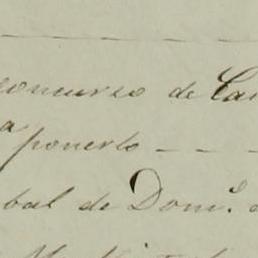 concurso de Ca
a ponerlo - - -
bal de Dom.º